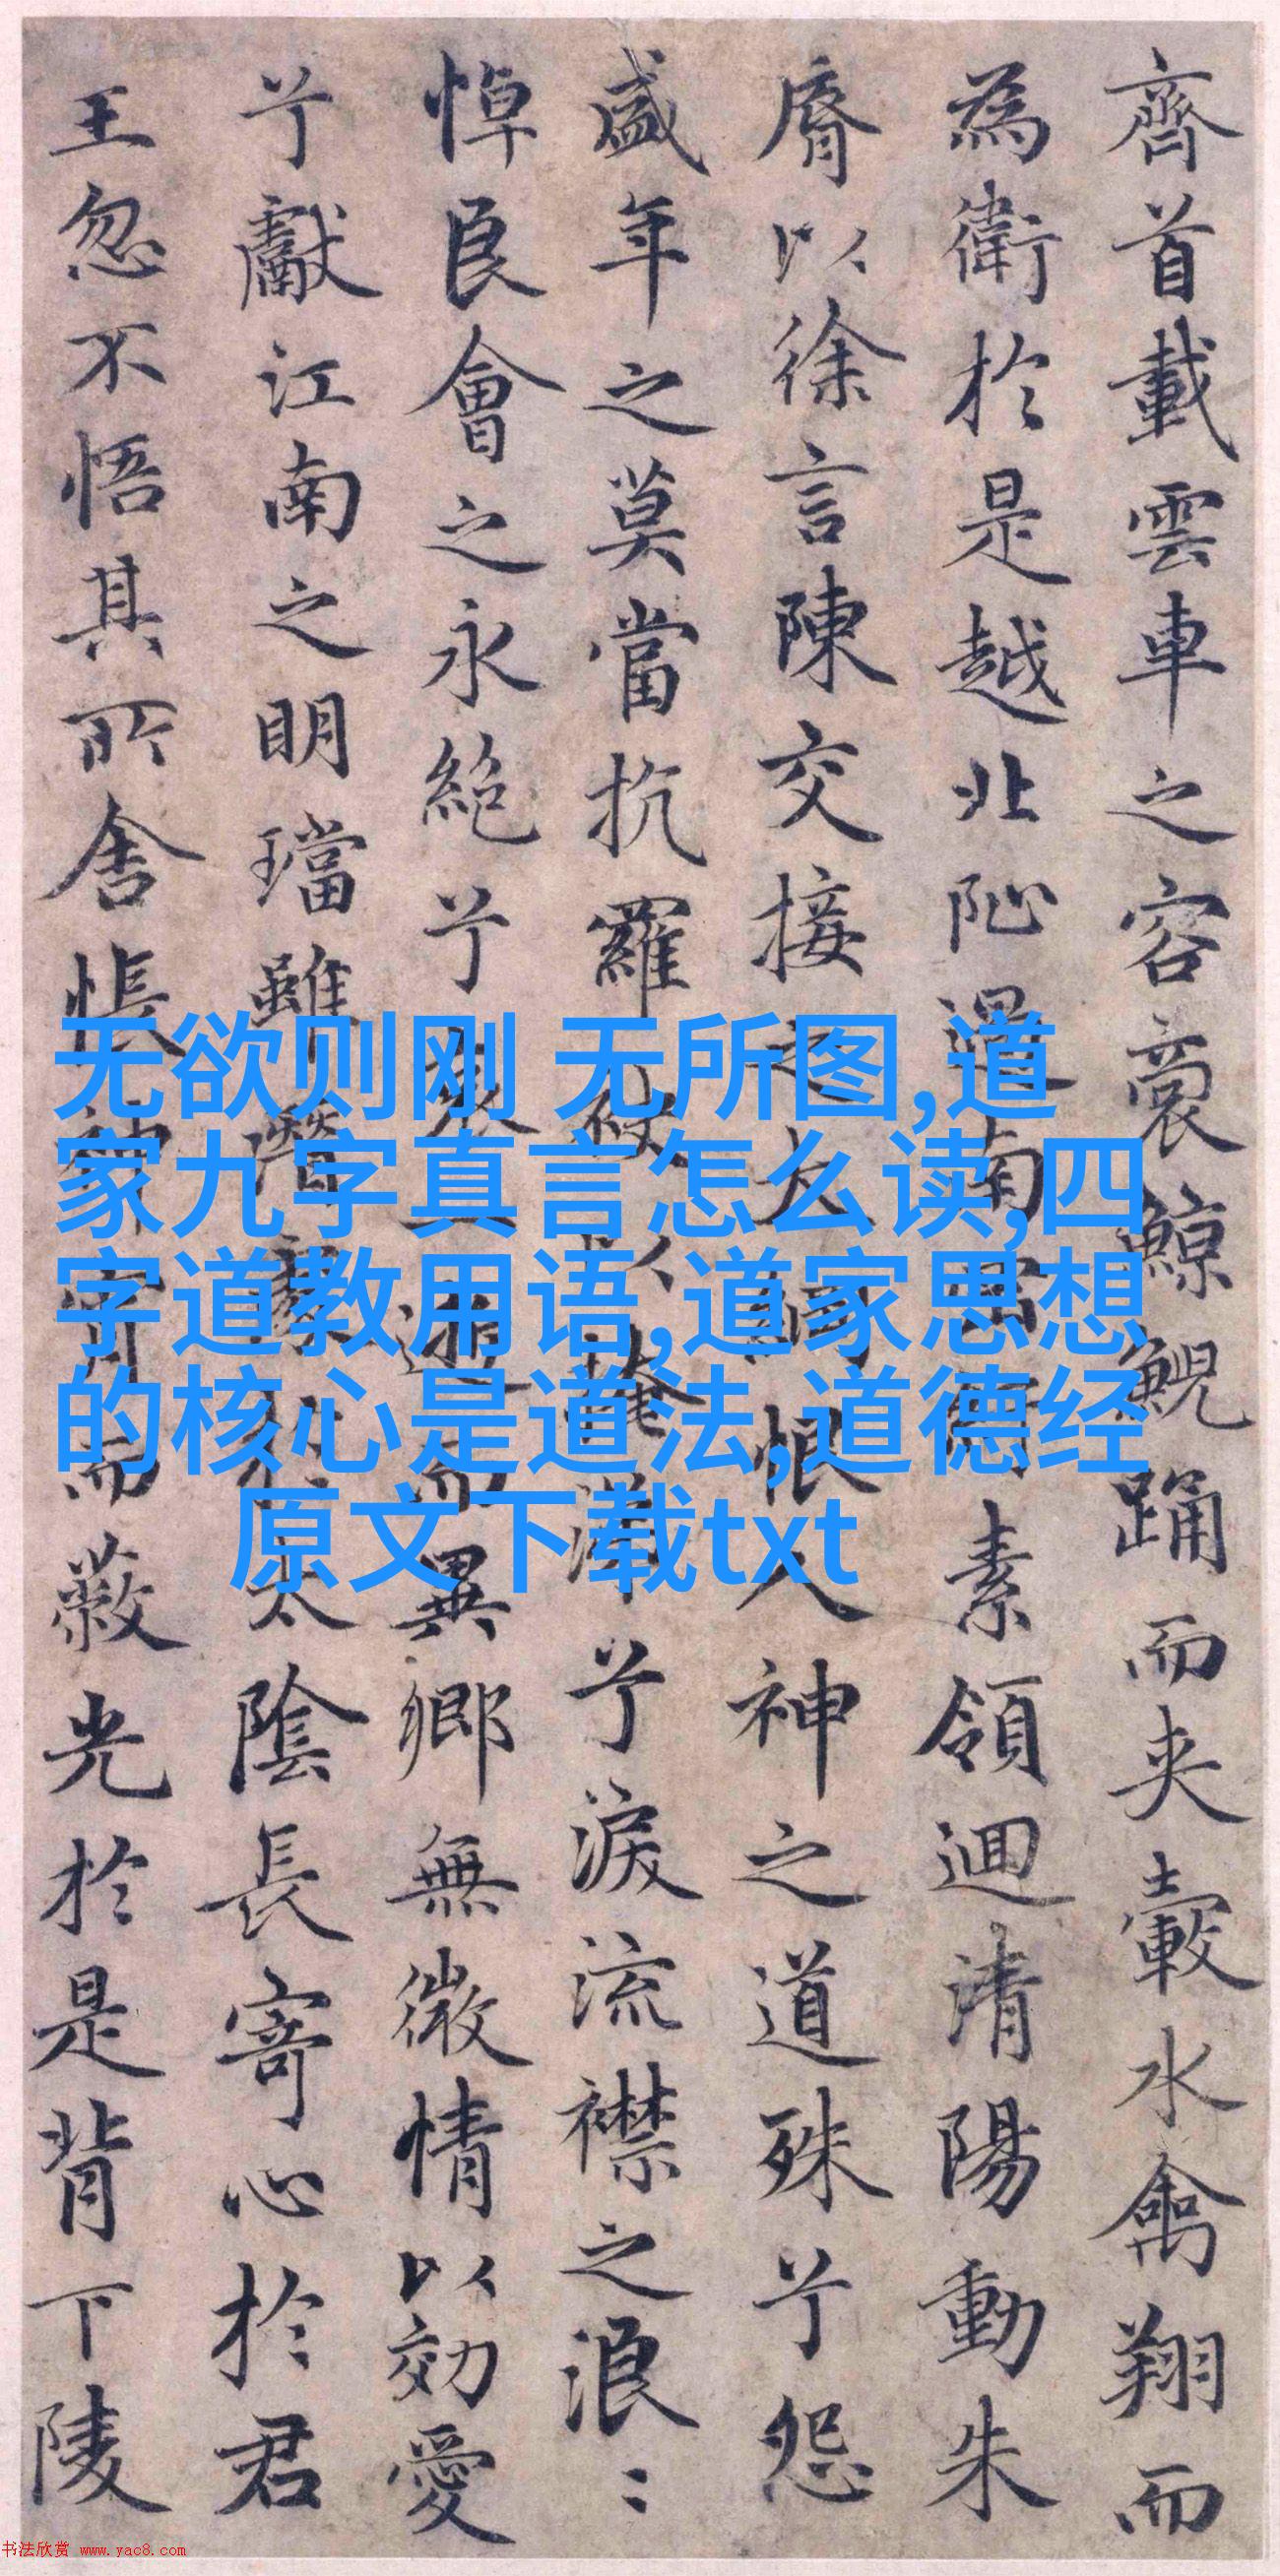 齊首載雲車之容裔鯨鯢踊而夾轂水禽翔而
為衛於是越北阯過南岡紆素領迴清陽動朱
脣以徐言陳交接之大綱恨人神之道殊兮怨
盛年之莫當抗羅袂以掩涕兮淚流襟之浪〻
悼良會之永絕兮哀一逝而異鄉無微情以効愛
兮獻江南之明璫雖潛處於太陰長寄心於君
王忽不悟其所舍悵神宵而蔽光於是背下陵
无欲则刚 无所图,道
家九字真言怎么读,四
字道教用语,道家思想
的核心是道法,道德经
原文下载txt
书法欣赏 www.yac8.com